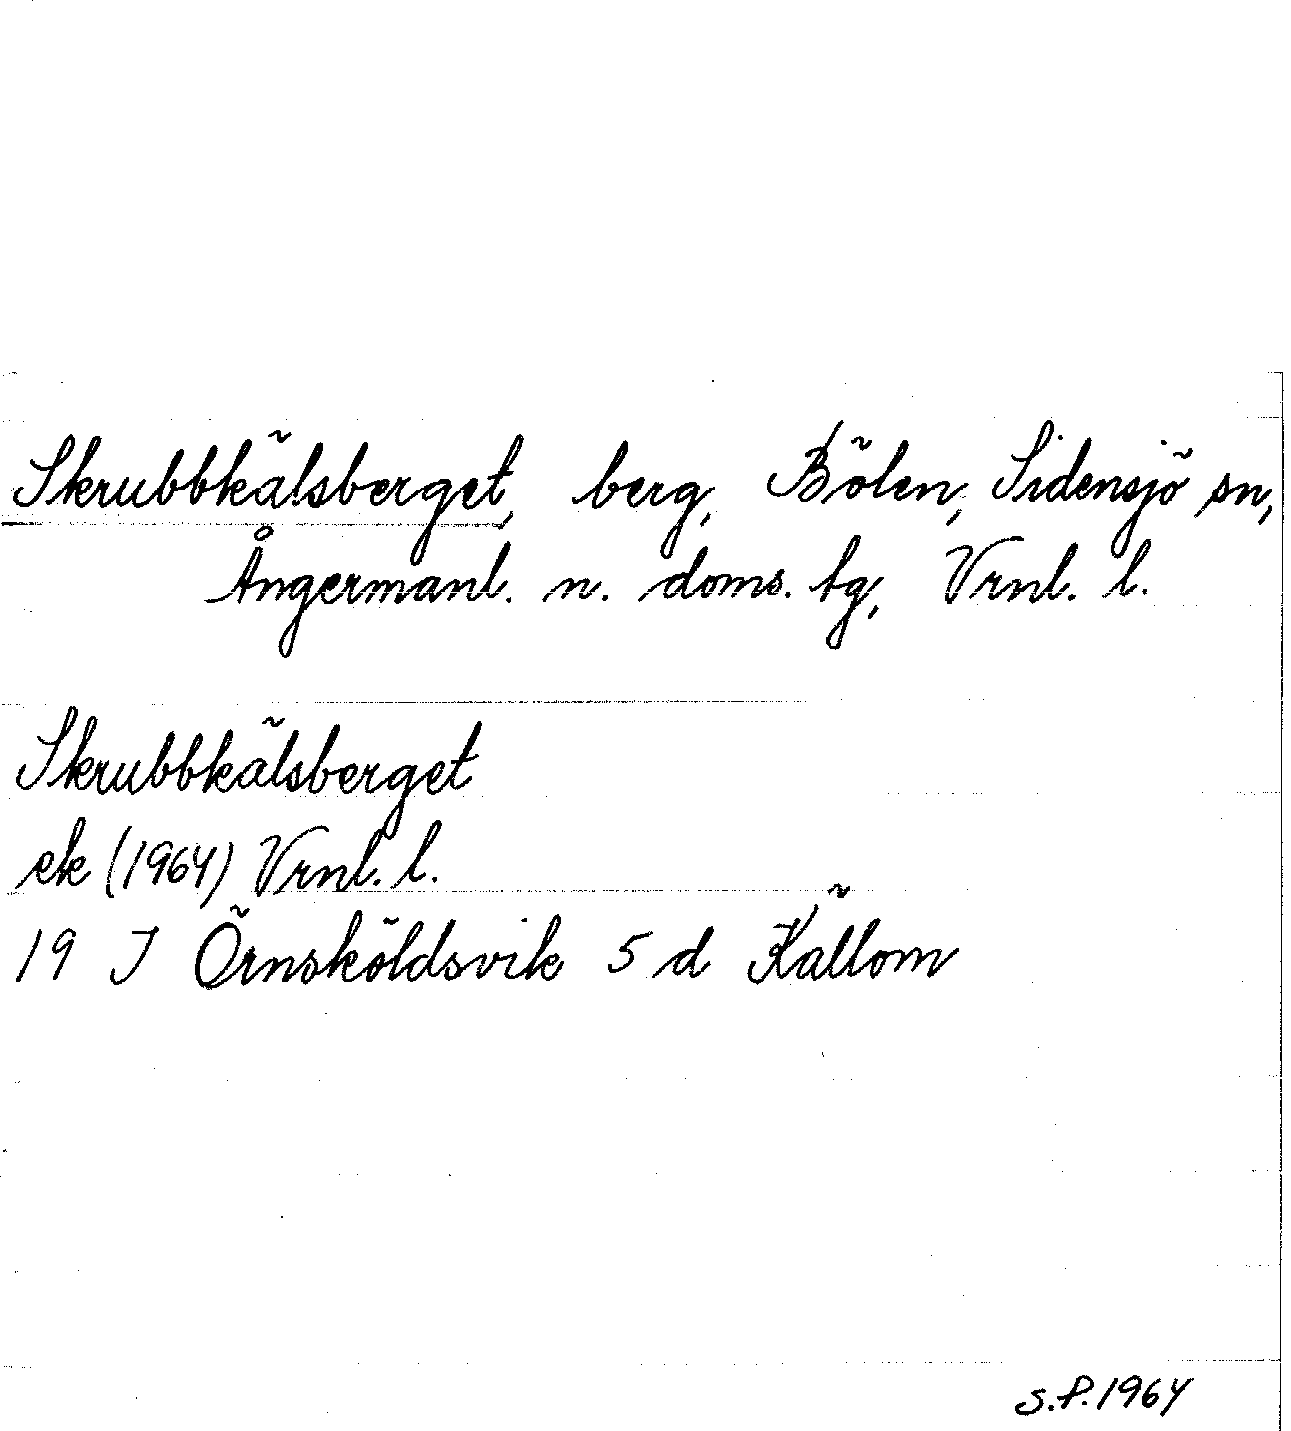 Skrubbkälsberget, berg, Bölen, Sidensjö sn,
Ångermanl. n. doms. tg, Vrnl. l.
Skrubbkälsberget
ek (1964) Vrnl. l.
19 J Örnsköldsvik 5 d Källom
S.P. 1964